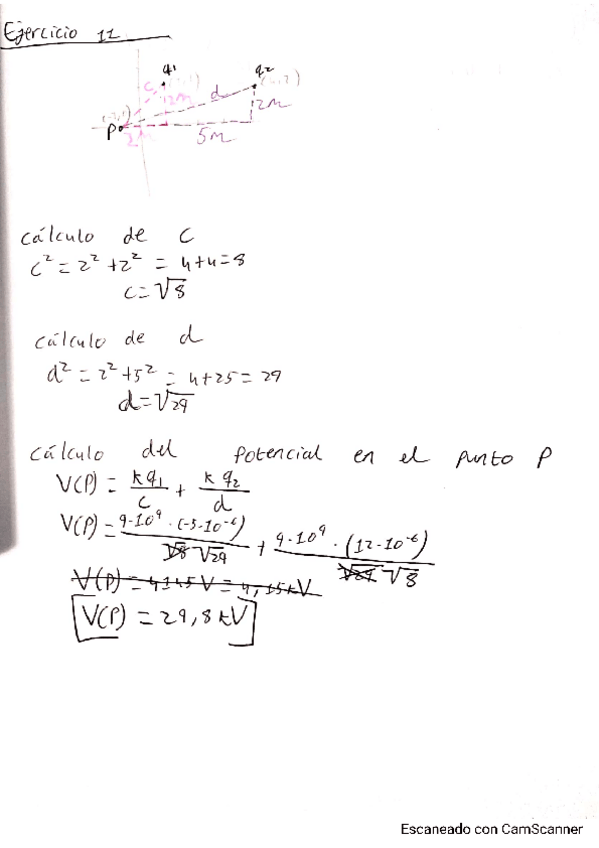 Ejercicio 11
q1
q2
c
d
2m
2m
P
2m
5m
cálculo de c
c² = 2² + 2² = 4+4 = 8
c = √8
cálculo de d
d² = 2² + 5² = 4 + 25 = 29
d = √29
cálculo del potencial en el punto P
V(P) = k q1 / c + k q2 / d
V(P) = 9·10⁹ · (-5·10⁻⁶) / √8 √29 + 9·10⁹ · (12·10⁻⁶) / √29 √8
V(P) = 4145 V = 4,15 kV
V(P) = 29,8 kV
Escaneado con CamScanner